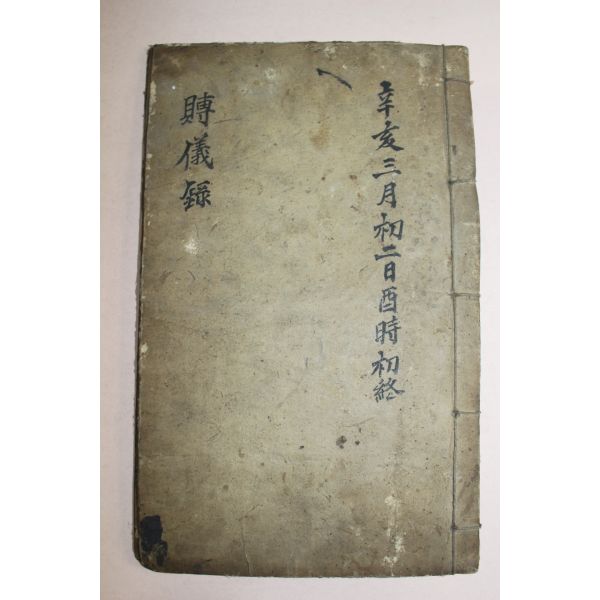 辛亥三月初二日酉時初終
賻儀錄